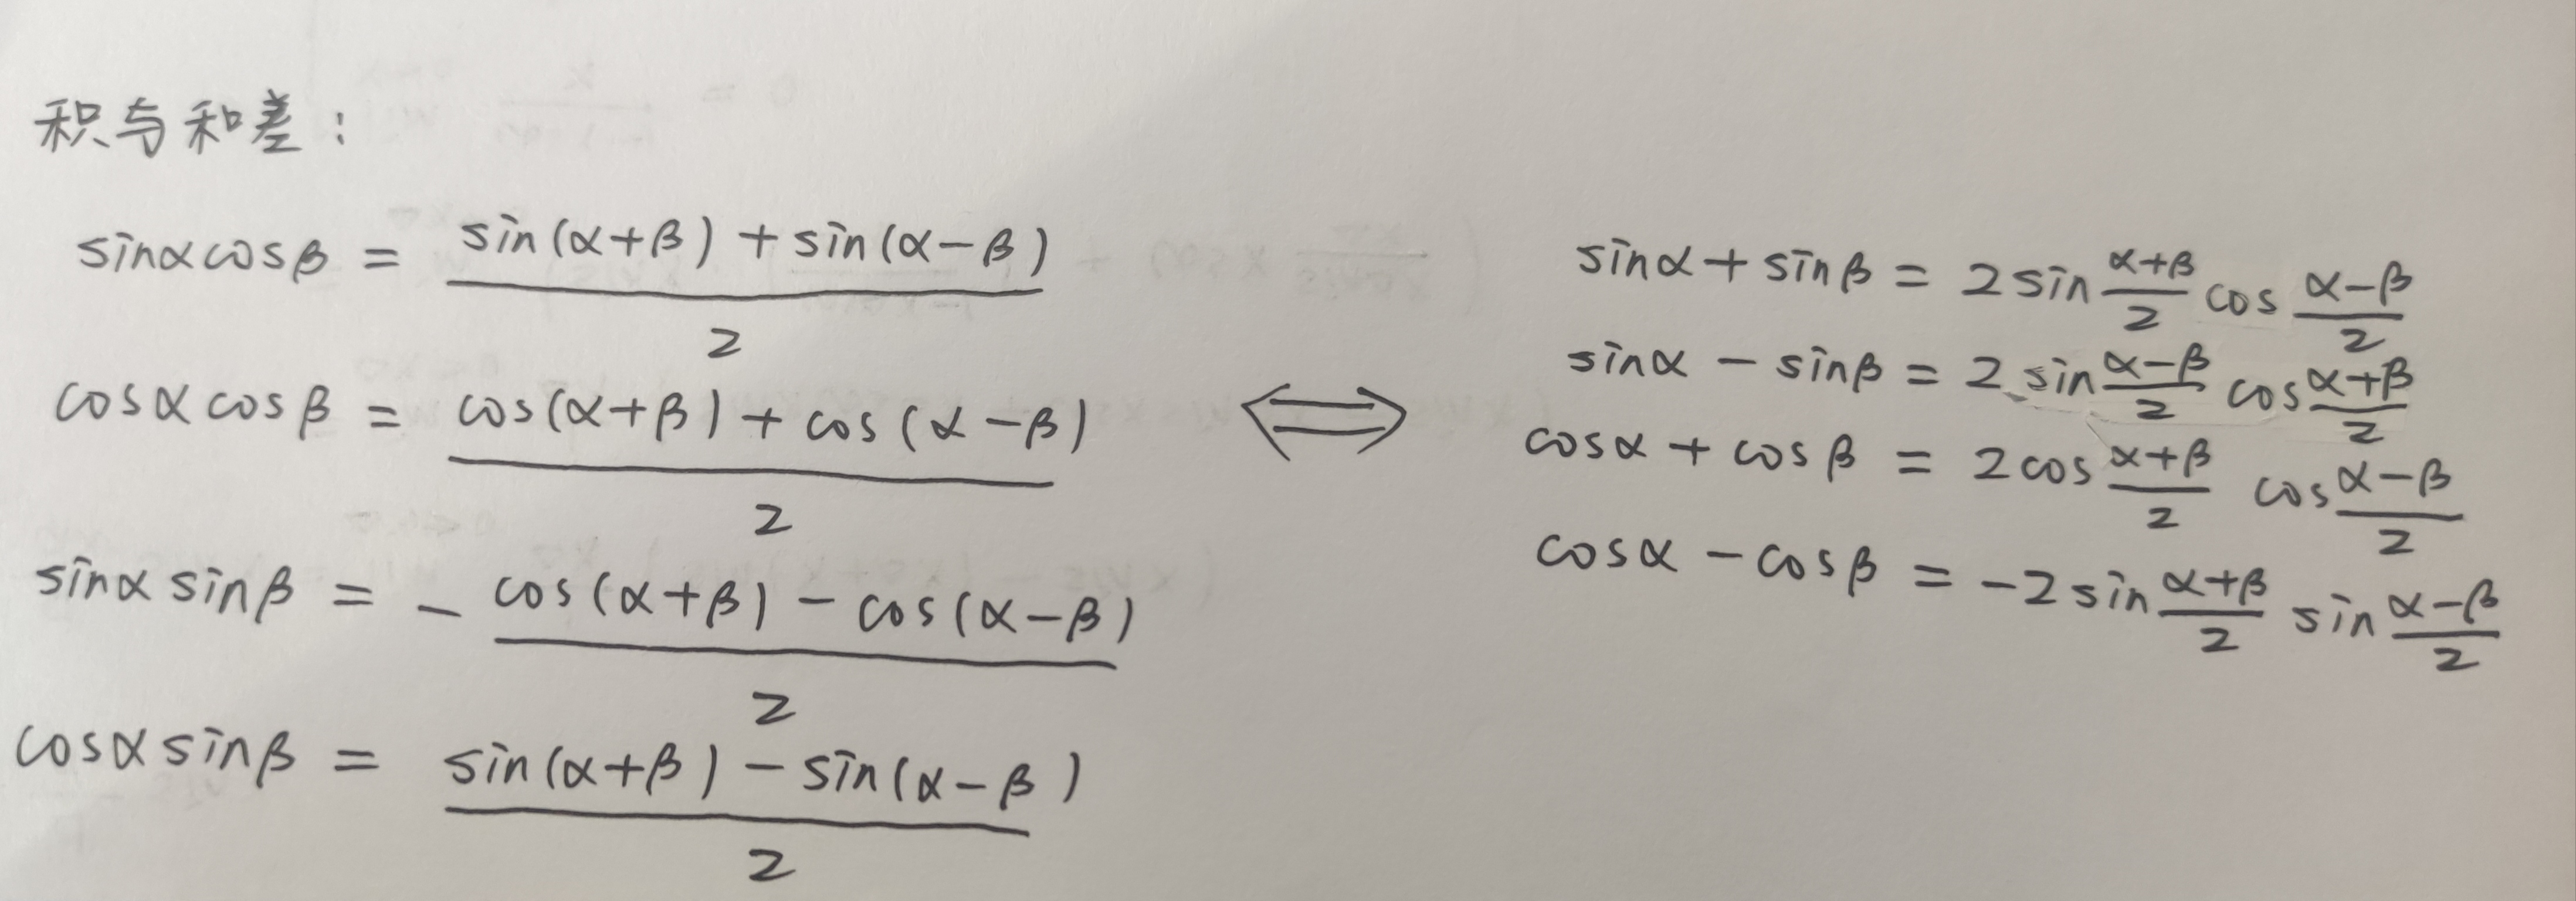 积与和差:
sinαcosβ = \frac{sin(α+β)+sin(α-β)}{2}
cosαcosβ = \frac{cos(α+β)+cos(α-β)}{2}
sinαsinβ = -\frac{cos(α+β)-cos(α-β)}{2}
cosαsinβ = \frac{sin(α+β)-sin(α-β)}{2}
⟺
sinα+sinβ = 2sin\frac{α+β}{2}cos\frac{α-β}{2}
sinα-sinβ = 2sin\frac{α-β}{2}cos\frac{α+β}{2}
cosα+cosβ = 2cos\frac{α+β}{2}cos\frac{α-β}{2}
cosα-cosβ = -2sin\frac{α+β}{2}sin\frac{α-β}{2}